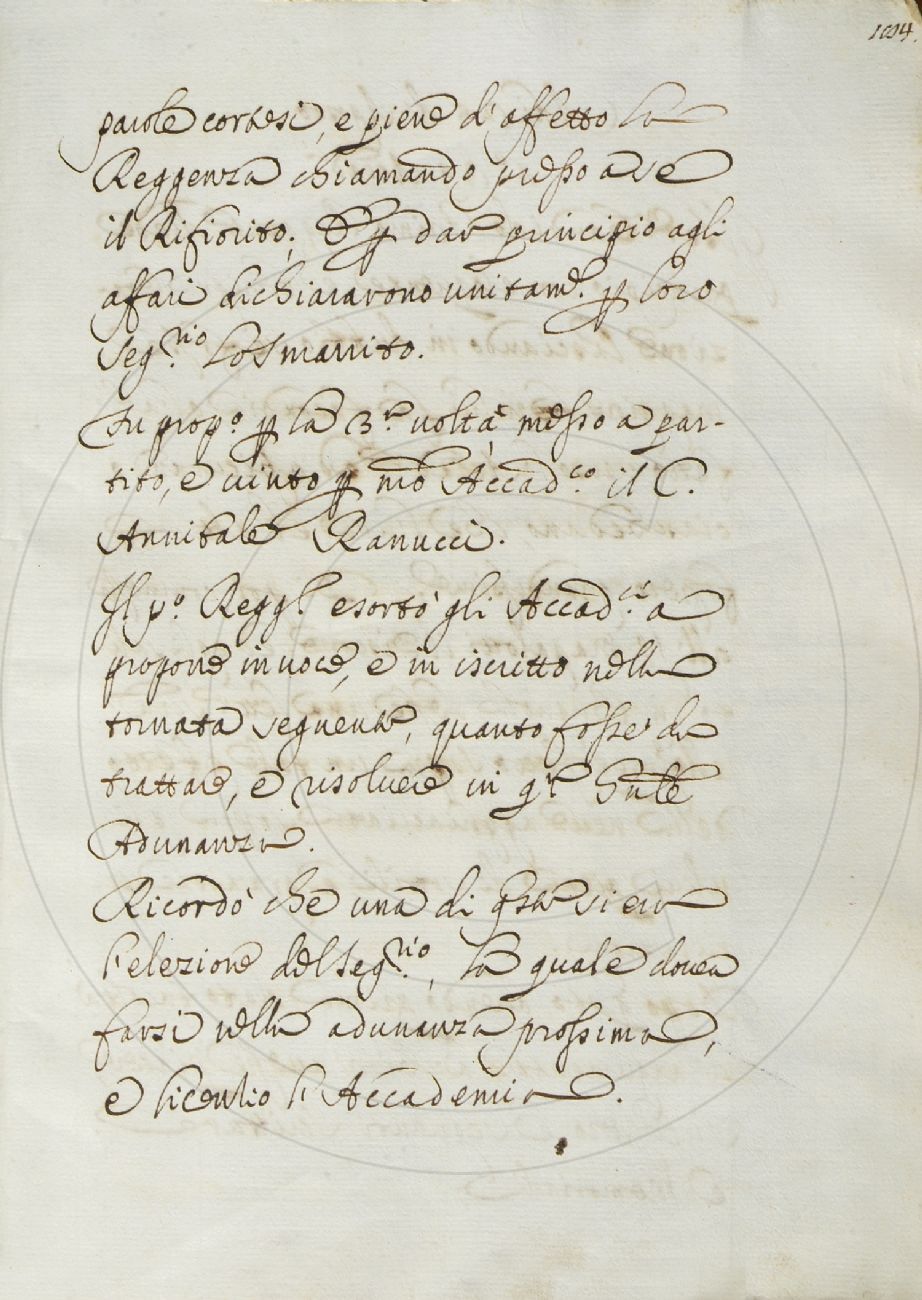 1094.
parole cortesi, e piene d'affetto la
Reggenza chiamando presso a se
il Rifiorito; E p dar principio agli
affari dichiararono unitam.e p loro
Seg.rio Lo Smarrito.
Fu prop.o p la 3.a volta messo a par-
tito, e vinto p nro Accad.co il C.
Annibale Ranucci.
Il p.o Regg.e esortò gli Accad.ci a
proporre in voce, e in iscritto nella
tornata seguente, quanto fosse da
trattare, e risolvere in q.ta
Adunanza.
Ricordò che una di qste si era
l'elezione del Seg.rio, la quale dovea
farsi nella adunanza prossima,
e licenziò l'Accademia.